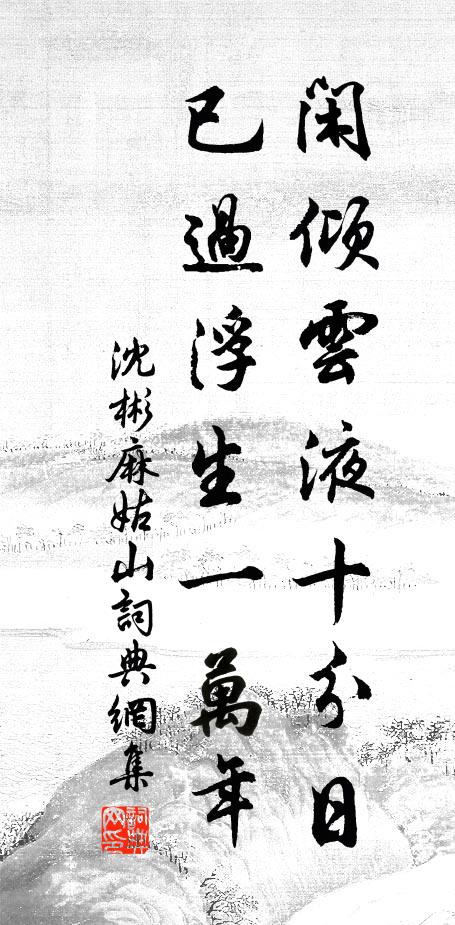 閑傾雲液十分日
已過浮生一萬年
沈彬麻姑山詞典網集